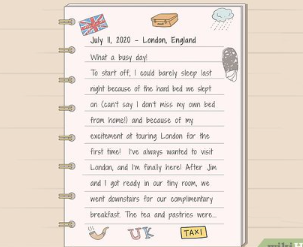 July 11, 2020 - London, England
What a busy day!
To start off, I could barely sleep last
night because of the hard bed we slept
on (can't say I don't miss my own bed
from home!) and because of my
excitement at touring London for the
first time! I've always wanted to visit
London, and I'm finally here! After Jim
and I got ready in our tiny room, we
went downstairs for our complimentary
breakfast. The tea and pastries were...
UK
TAXI